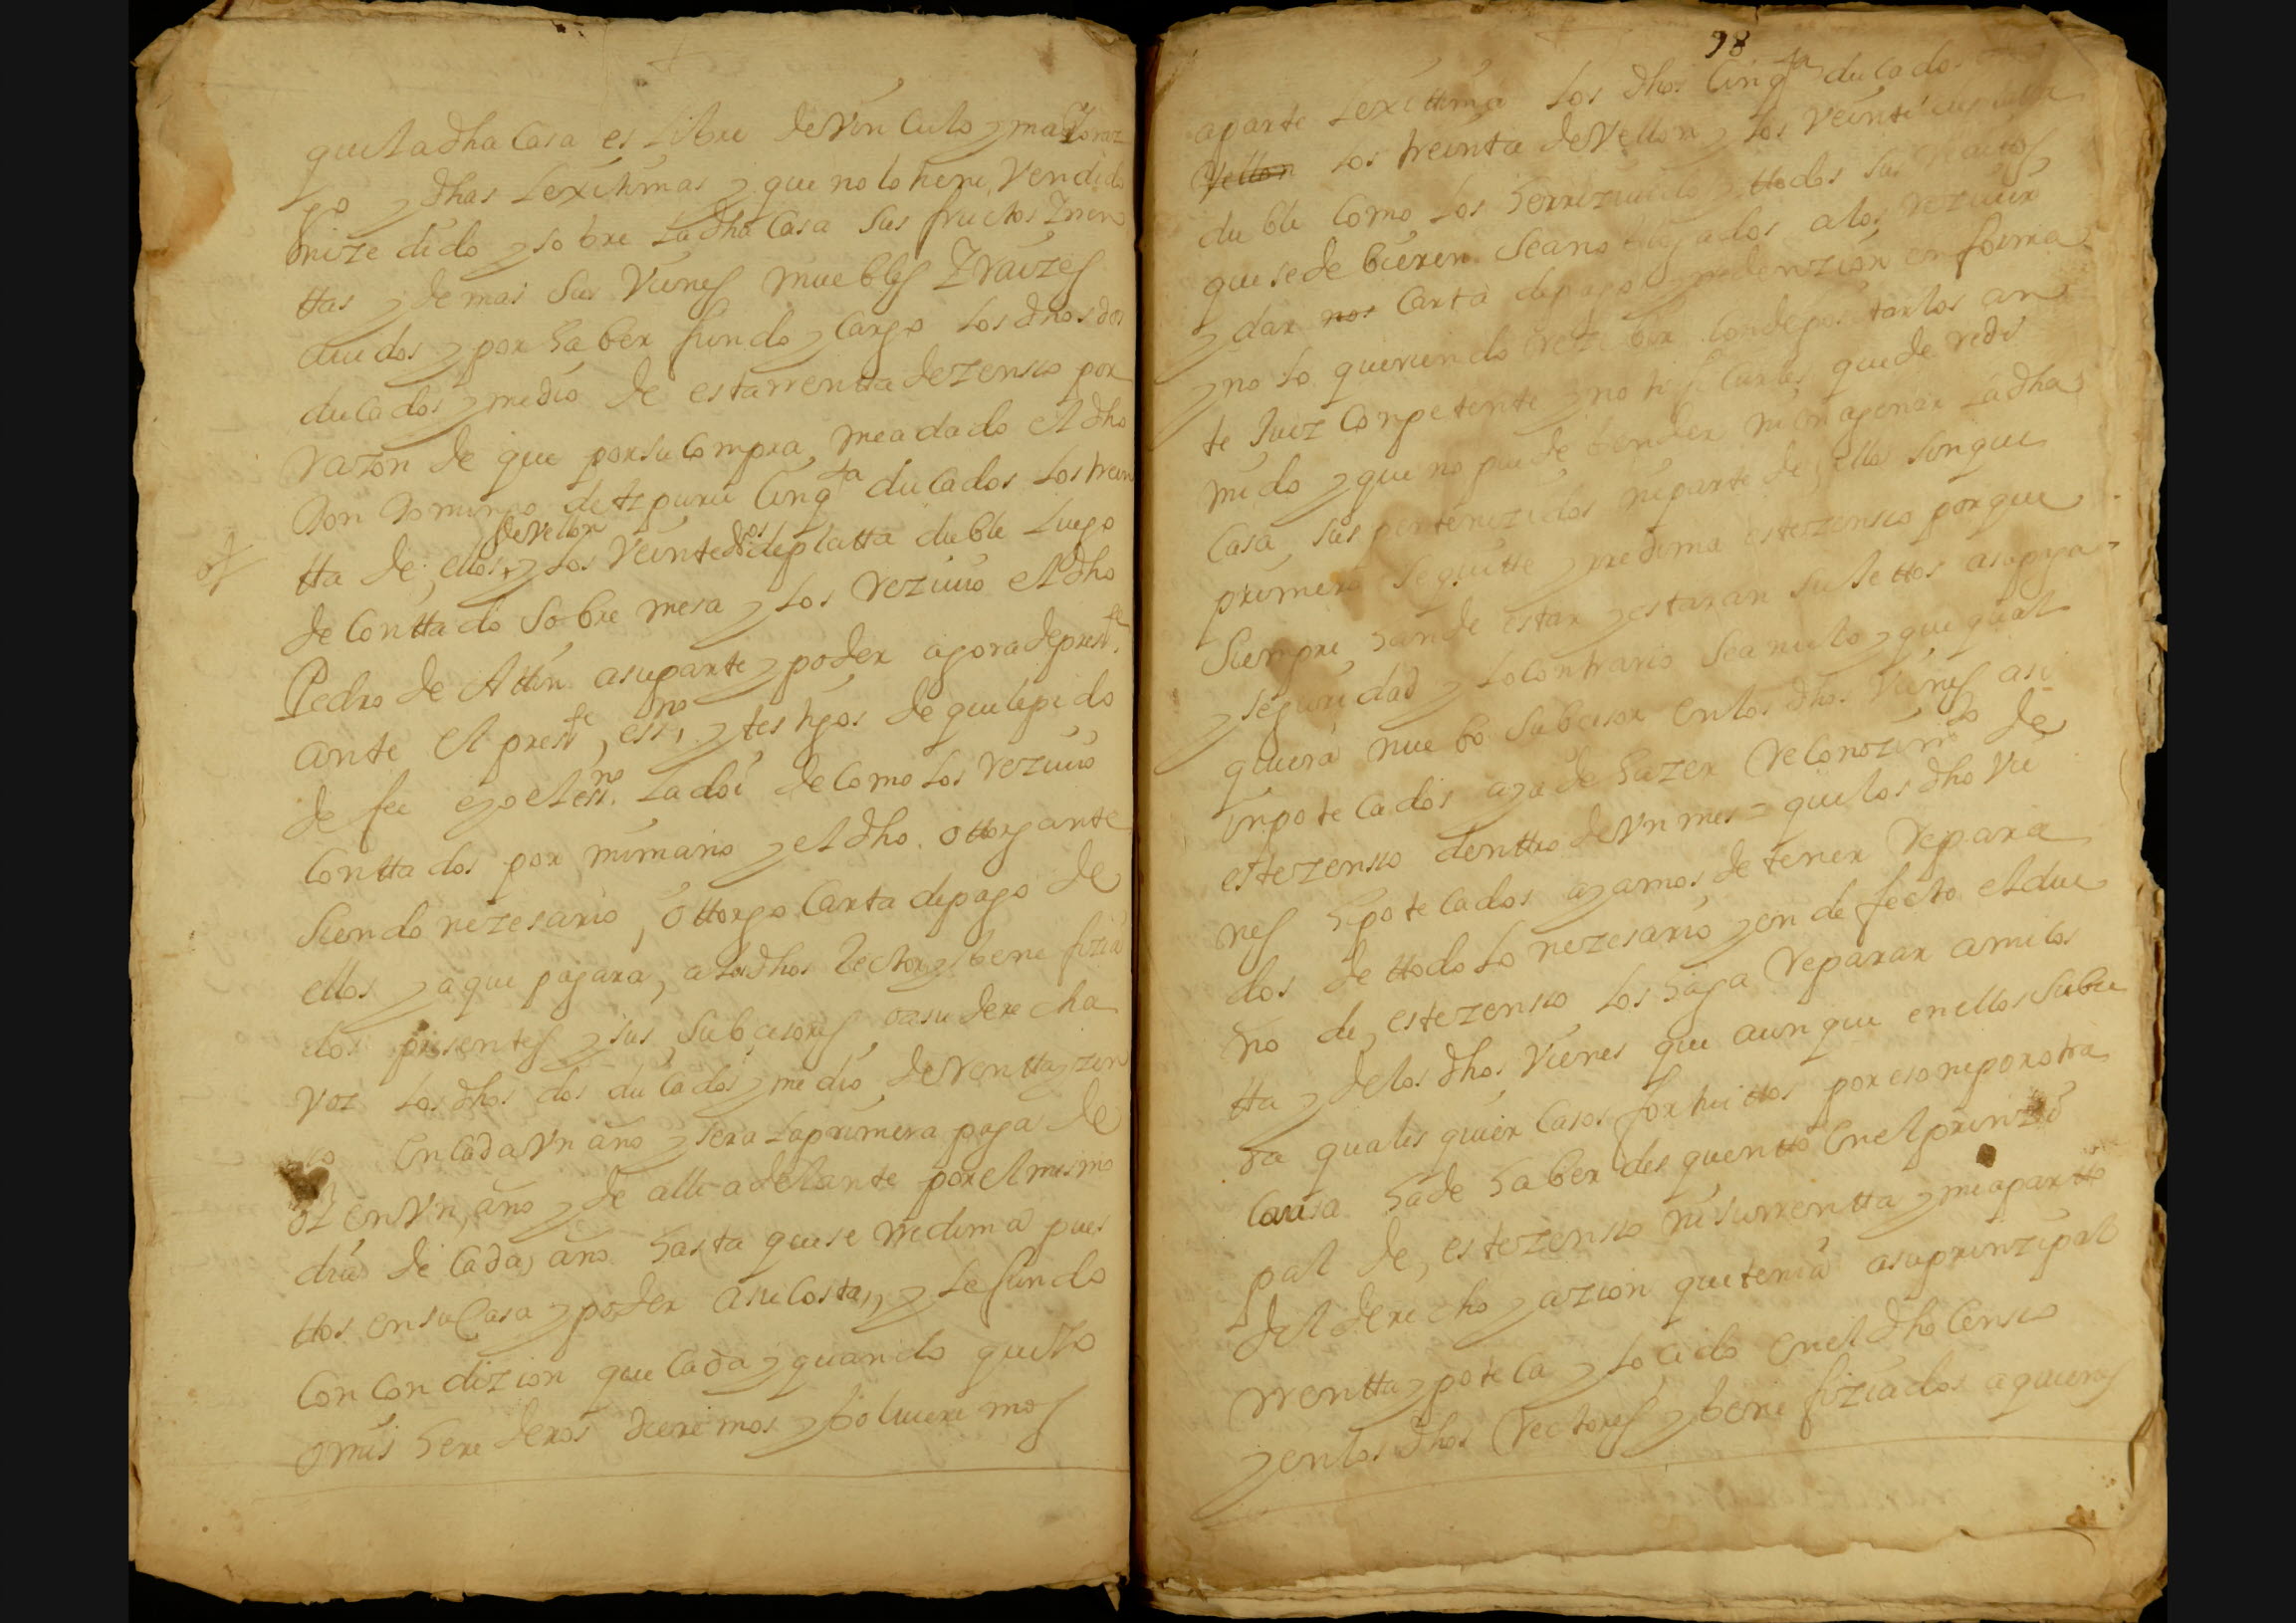 que la dha Casa es Libre de Vinculo y mayoraz
go y dhas Lexitimas y que no lo tiene, Vendido
ni zedido y sobre La dha Casa Sus fructos y ren
ttas y demas Sus Vienes muebles y raizes
auidos y por haber fundo y Cargo los dhos dos
ducados y medio de esta rentta de zenso por
razon de que por su Compra me a dado el dho
Don Domingo de Cinqta ducados Los trein
de vellon
tta de, ellos, y Los Veinte dos de platta duble Luego
de Conttado Sobre mesa y Los reziuio el dho
Pedro de Attin a su parte y poder agora de preste
ante el preste, essno, y testigos de que le pido
de fee e yo el essno La doi de Como Los reziuio
Conttados por mi mano y el dho. ottorgante
Siendo nezesario, ottorgo Carta de pago de
ellos y a que pagara, a los dhos Rector y benefizia
dos presentes y sus, Subcesores o a su derecha
voz Los dhos dos ducados y medio de rentta y zen
so En Cada Vn año y sera La primera paga de
oi en Vn, año y de alli adelante por el mismo
dia de Cada, año hasta que se redima pues
ttos en su Casa y poder a su Costa, y Le fundo
Con Condizion que Cada y quando que Yo
o mis herederos dieremos y boluieremos
98
a parte Lexittima Los dhos Cinqta ducados
Vellon Los treinta de Vellon y Los Veinte de platta
duble Como Los he reziuido y ttodos Sus reditos
que se debieren Sean obligados a los reziuir
y dar nos Carta de pago y redenzion en forma
y no lo queriendo rezibir Con depositarlos an
te Juez Conpetente y notificarles quede redi
mido y que no puede bender ni enagenar La dha
Casa, sus pertenezidos ni parte de, ellos sin que
primero se quitte y redima este zenso porque
Siempre han de estar y estaran Sujettos a su paga
y seguridad y Lo Contrario Sea nulo y que qual
quiera nuebo Subcesor en los dhos Vienes asi
inpotecados aya de hazer reconozimto de
este zenso denttro de Vn mes = que los dho Vie
nes hipotecados ayamos de tener repara
dos de ttodo Lo nezesario y en defecto el due
ño de, este zenso Los haga reparar a mi Cos
tta y de los dhos Vienes que aunque en ellos Sube
da qualesquier Casos fortuittos por eso ni por otra
Causa ha de haber desquentto En el prinzi
pal de, este zenso ni su rrentta y me apartto
del derecho y azion que tenia a su prinzipal
rrentta ypoteca y Lo Cedo En el dho Censo
y en los dhos Rectores y benefiziados a quienes